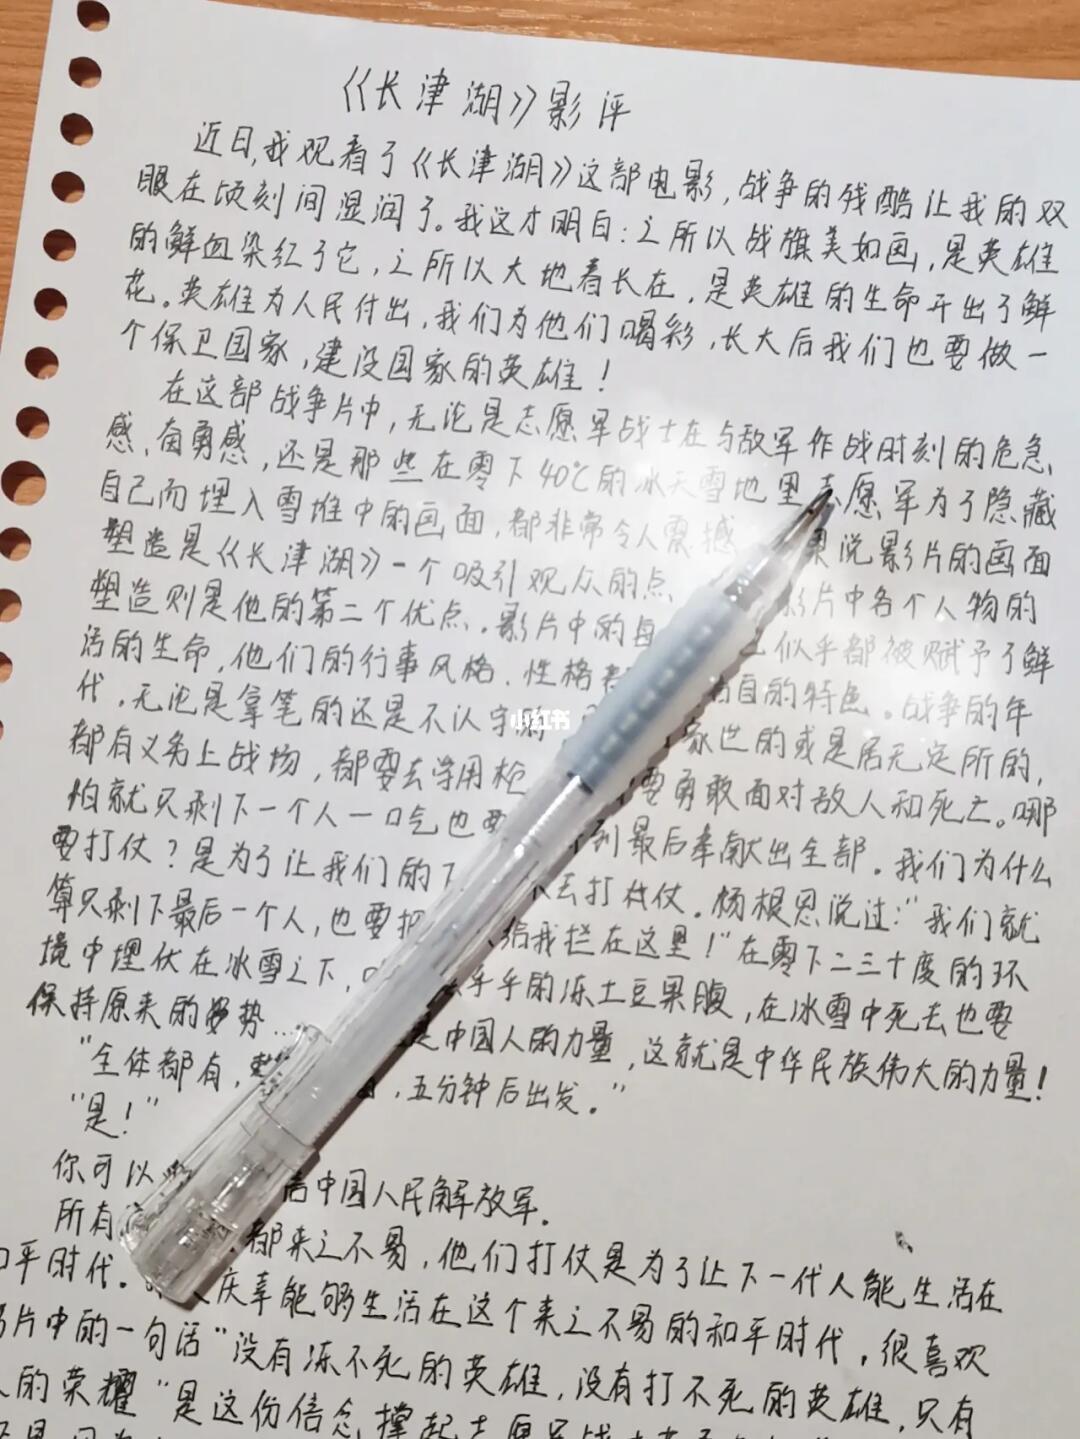 《长津湖》影评
近日,我观看了《长津湖》这部电影,战争的残酷让我的双
眼在顷刻间湿润了。我这才明白:之所以战旗美如画,是英雄
的鲜血染红了它,之所以大地春长在,是英雄的生命开出了鲜
花。英雄为人民付出,我们为他们喝彩,长大后我们也要做一
个保卫国家,建设国家的英雄!
在这部战争片中,无论是志愿军战士在与敌军作战时刻的危急
感,奋勇感,还是那些在零下40℃的冰天雪地里志愿军为了隐藏
自己而埋入雪堆中的画面,都非常令人震撼 果说影片的画面
塑造是《长津湖》一个吸引观众的点 影片中各个人物的
塑造则是他的第二个优点.影片中的 似乎都被赋予了鲜
活的生命,他们的行事风格.性格 各自的特色.战争的年
代,无论是拿笔的还是不认字
小红书
都有义务上战场,都要去学用枪 家世的或是居无定所的,
怕就只剩下一个人一口气也要 要勇敢面对敌人和死亡。哪
要打仗?是为了让我们的下 到最后奉献出全部.我们为什么
算只剩下最后一个人,也要把 去打仗.杨根思说过:"我们就
境中埋伏在冰雪之下, 给我拦在这里!"在零下二三十度的环
保持原来的姿势... 乎乎的冻土豆果腹,在冰雪中死去也要
"全体都有, 是中国人的力量,这就是中华民族伟大的力量!
"是!" ,五分钟后出发."
你可以 中国人民解放军.
所有 都来之不易,他们打仗是为了让下一代人能生活在
平时代. 庆幸能够生活在这个来之不易的和平时代.很喜欢
片中的一句话"没有冻不死的英雄,没有打不死的英雄,只有
的荣耀"是这份信念撑起志愿军战士